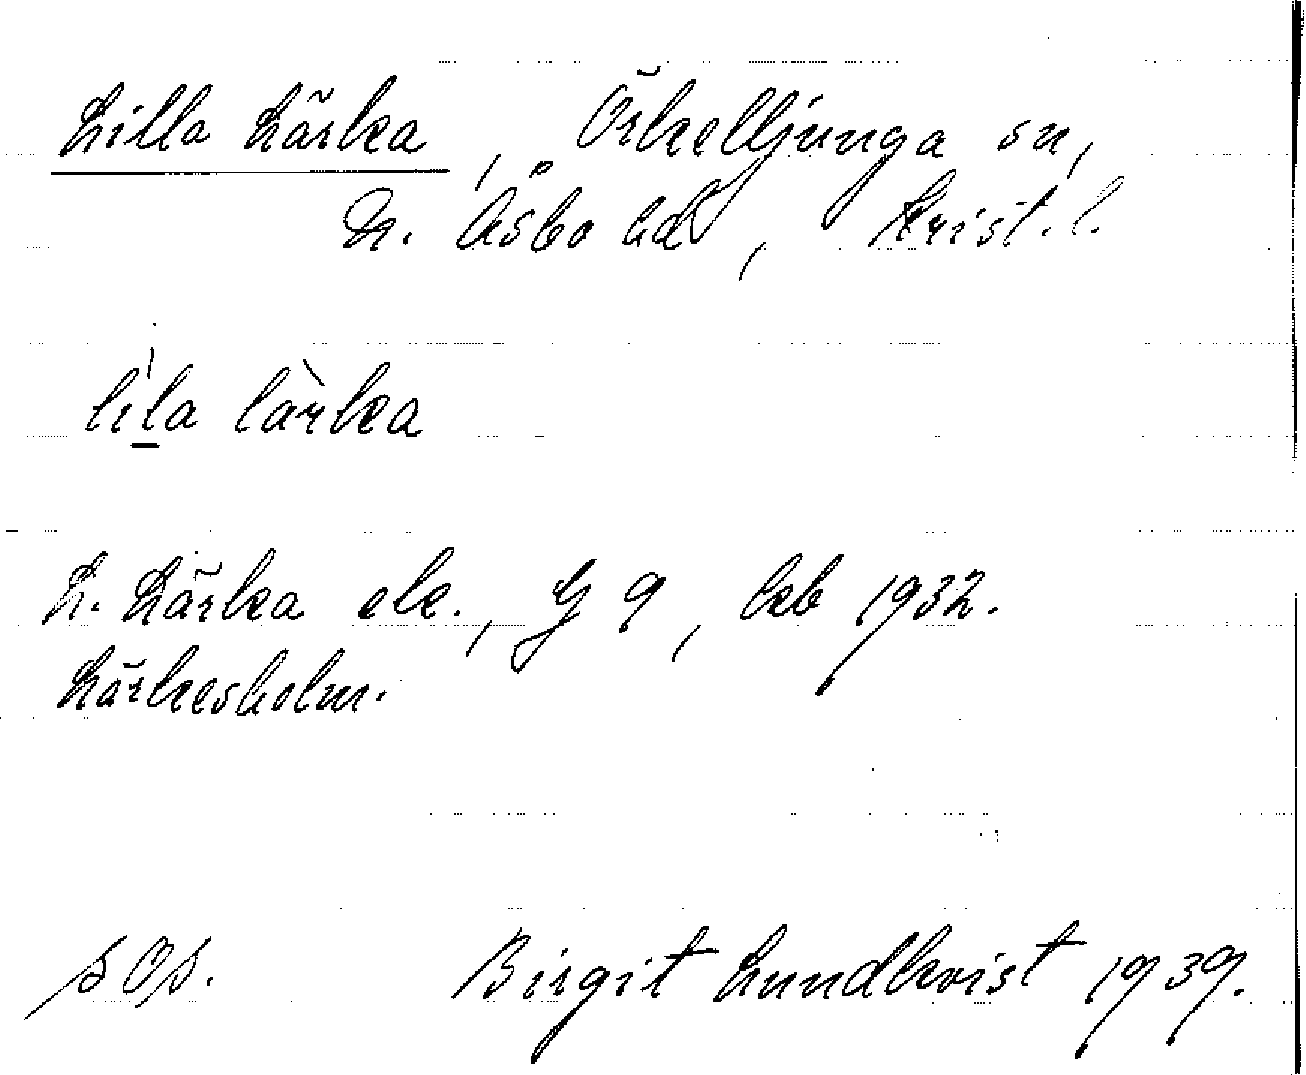 Lilla Lärka, Örkelljunga sn,
N. Åsbo hd, Krist. l.
lìla làrka
L. Lärka ek., G 9, kb 1932.
Lärkesholm.
Birgit Lundkvist 1939.